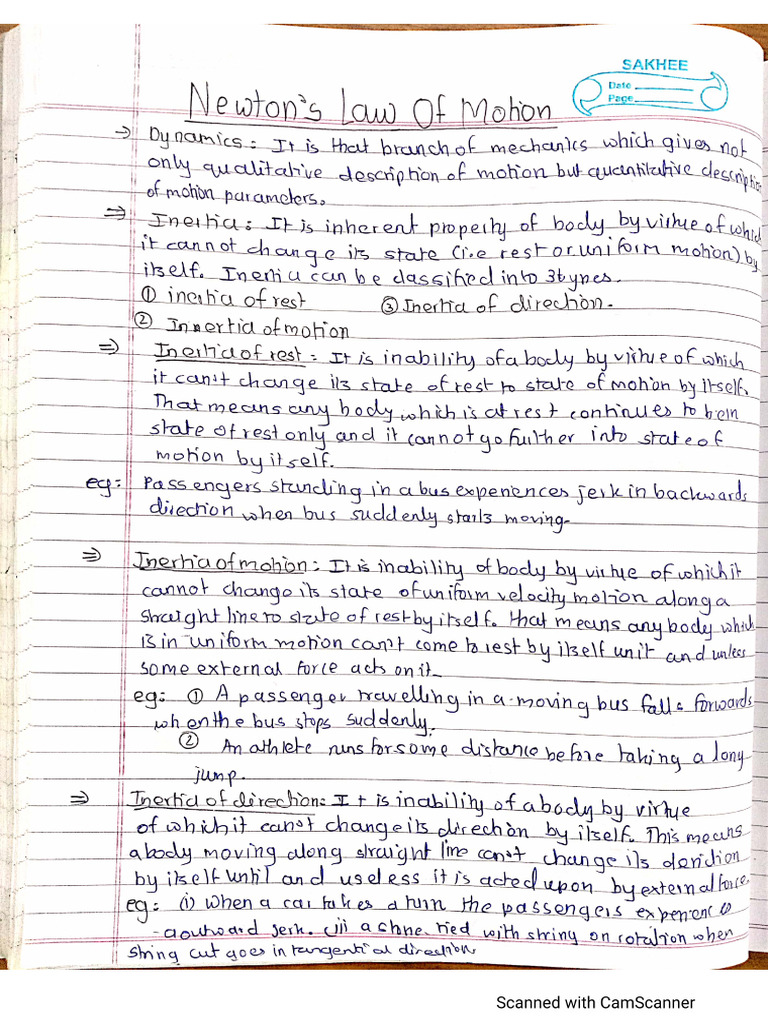 SAKHEE
Date
Page
Newton's Law Of Motion
→ Dynamics: It is that branch of mechanics which gives not
only qualitative description of motion but quantitative description
of motion parameters.
⇒ Inertia: It is inherent property of body by virtue of which
it cannot change its state (i.e rest or uniform motion) by
itself. Inertia can be classified into 3 types.
① inertia of rest ③ Inertia of direction.
② Innertia of motion
⇒ Inertia of rest: It is inability of a body by virtue of which
it can't change its state of rest to state of motion by itself.
That means any body which is at rest continues to be in
state of rest only and it cannot go further into state of
motion by itself.
eg: Passengers standing in a bus experiences jerk in backwards
direction when bus suddenly starts moving.
⇒ Inertia of motion: It is inability of body by virtue of which it
cannot change its state of uniform velocity motion along a
straight line to state of rest by itself. that means any body which
is in uniform motion can't come to rest by itself unit and unless
some external force acts on it.
eg: ① A passenger travelling in a moving bus falls forwards
when the bus stops suddenly.
② An athlete runs for some distance before taking a long
jump.
⇒ Inertia of direction: It is inability of a body by virtue
of which it can't change its direction by itself. This means
a body moving along straight line can't change its
by itself until and useless it is acted upon by external force.
eg: (i) when a car takes a turn the passengers experience
a outward jerk. (ii) a tied with string on rotation when
string cut goes in tangential direction.
Scanned with CamScanner